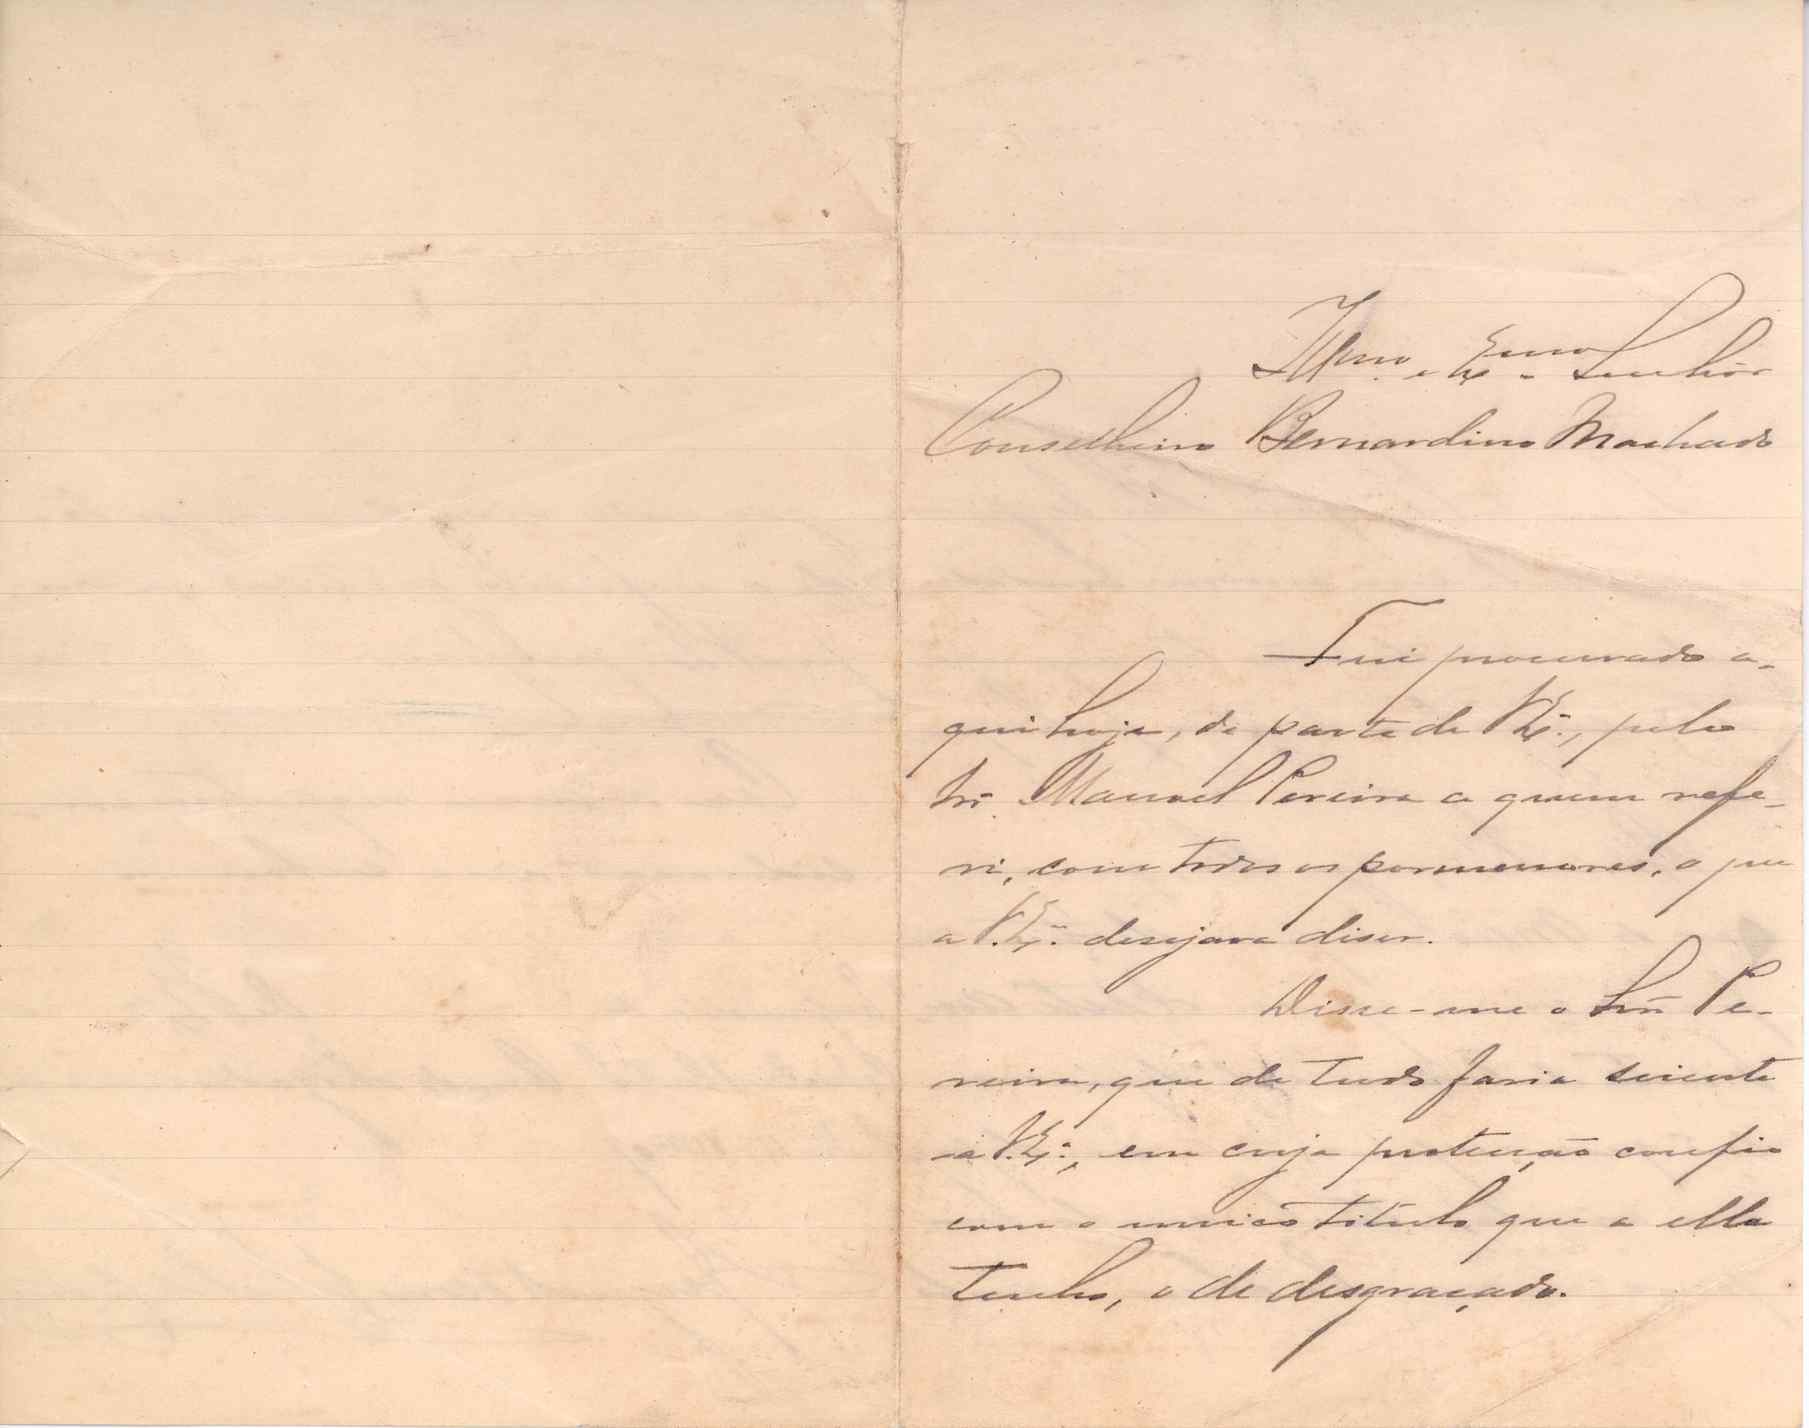 Illmo. e Exmo. Senhor
Conselheiro Bernardino Machado
Fui procurado a-
qui hoje, da parte de V. Exª., pelo
Snr. Manoel Pereira a quem refe-
ri, com todos os pormenores, o que
a V. Exª. desejava diser.
Disse-me o Snr. Pe-
reira, que de tudo faria sciente
a V. Exª., em cuja protecção confio
com o unico titulo que a ella
tenho, o de desgraçado.